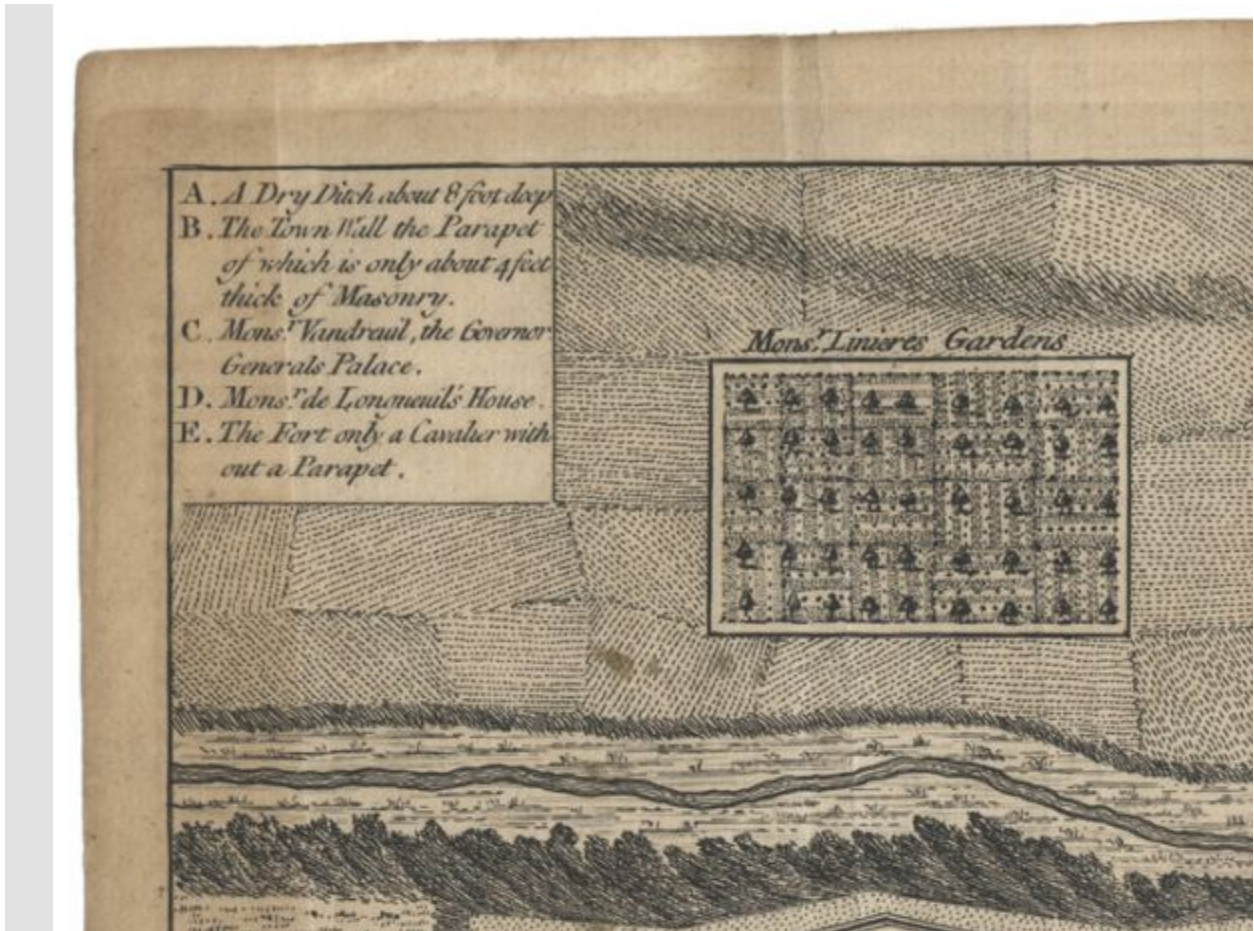 A. A Dry Ditch about 8 foot deep
B. The Town Wall the Parapet
of which is only about 4 feet
thick of Masonry.
C. Mons.r Vandreuil, the Governor
Generals Palace.
D. Mons.r de Longueuil's House.
E. The Fort only a Cavalier with
out a Parapet.
Mons.r Linieres Gardens